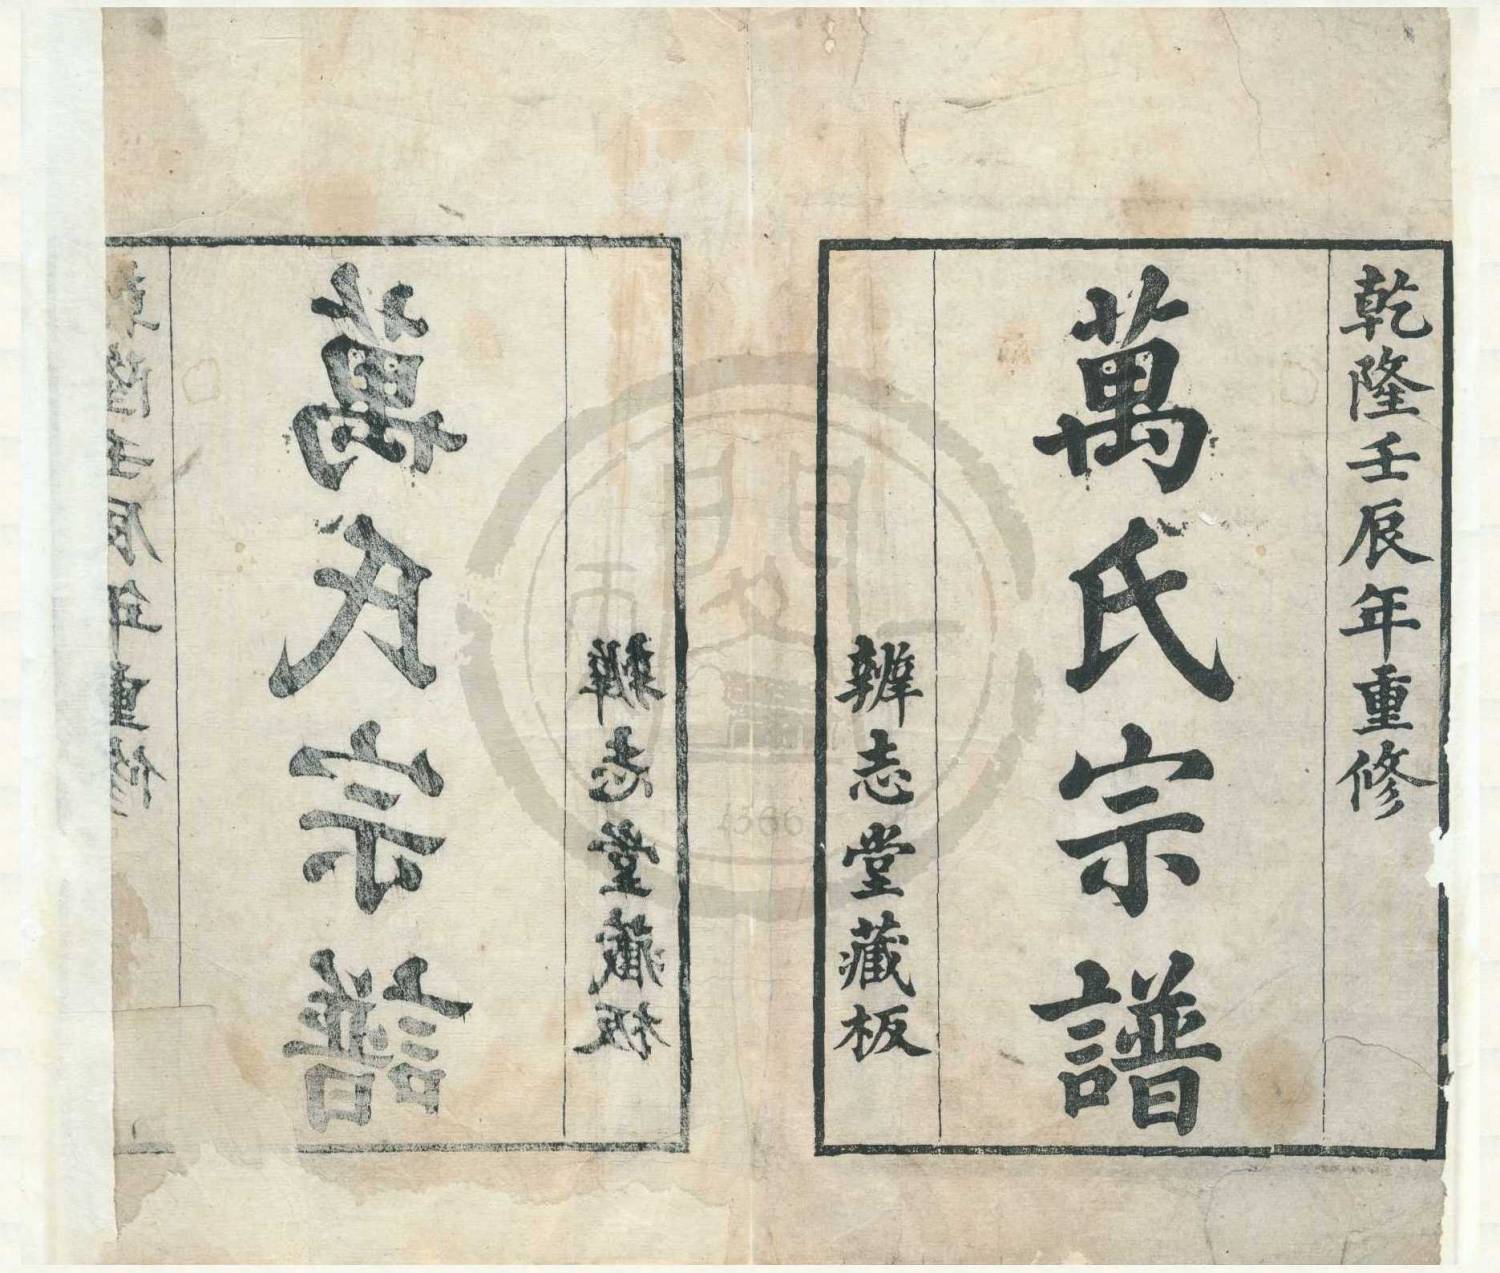 乾隆壬辰年重修
萬氏宗譜
辨志堂藏板
辨志堂藏板
萬氏宗譜
乾隆壬辰年重修